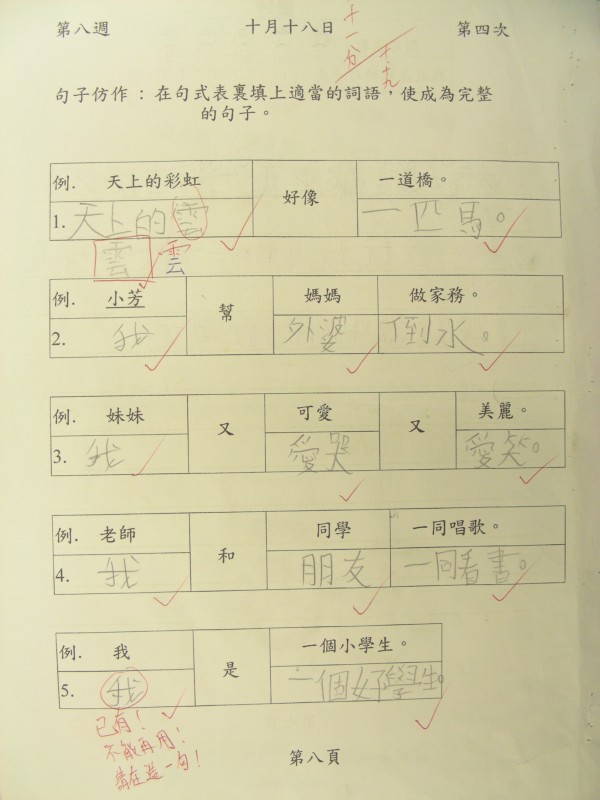 第八週 十月十八日 第四次
十一分
十.十九
句子仿作：在句式表裏填上適當的詞語，使成為完整
的句子。
例. 天上的彩虹 好像 一道橋。
1. 天上的雲 一匹馬。
雲 雲
例. 小芳 幫 媽媽 做家務。
2. 我 外婆 倒水。
例. 妹妹 又 可愛 又 美麗。
3. 我 愛哭 愛笑。
例. 老師 和 同學 一同唱歌。
4. 我 朋友 一同看書。
例. 我 是 一個小學生。
5. 我 一個好學生。
已有！
不能再用！
請在造一句！
第八頁